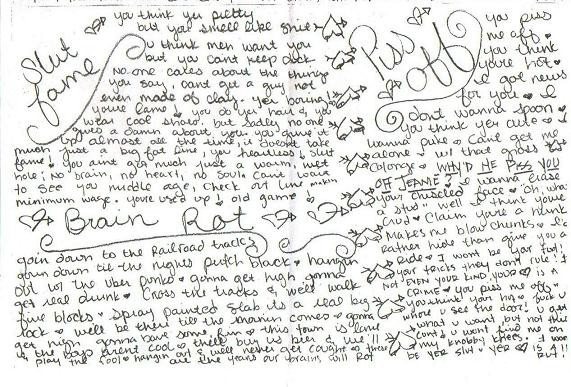 Slut
fame
you think yer pretty
but you smell like shit
u think men want you
but you cant keep dick
no one cares about the things
you say, cant get a guy not
even made of clay. yer boring
youre lame you do yer hair & you
wear cool shoes. to sadly no one
gives a damn about you. you give it
up almost all the time, it doesnt take
much just a big fat line. you headless slut
fame you aint got much just a warm, wet
hole; no brain, no heart, no soul. cant wait
to see you middle age, check out line makin
minimum wage. youre used up old game
Brain Rot
goin down to the railroad tracks
goin down til the nights pitch black hangin
out w/ the uber punks gonna get high gonna
get real drunk cross the tracks & well walk
five blocks spray painted slab its a real big
rock well be there till the mornin comes gonna
get high gonna have some fun this town is lame
& the boys arent cool theyll buy us beer & we'll
play the fool hangin out & well never get caught
are the years our brains will rot
Piss
off
you piss
me off
you think
youre hot
ive got news
for you I
dont wanna spoon
you think yer cute I
wanna puke Cant get me
alone w/ that gross
Cologne WHY'D HE PISS YOU
OFF JEANIE? I wanna erase
your chiseled face "Oh, what
a stud" well I think youre
a dud Claim youre a hunk
makes me blow chunks Id
rather hide than give you a
ride I wont be your fool!
your tricks they dont rule!
NOT EVEN YOUR KIND, YOUR IS A
CRIME you piss me off
you think your hot fuck u
whore u see the door! u got
what u want, but not this
cunt u wont find me on
my knobby knees. I wont
be yer slut yer is a
rut!